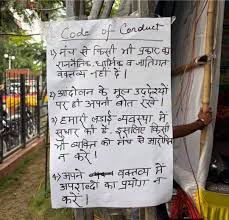 Code of Conduct
1) मंच से किसी भी प्रकार का
राजनैतिक, धार्मिक व जातिगत
वक्तव्य नहीं दें।
2) आंदोलन के मूल उद्देश्यों
पर ही अपनी बात रखें।
3) हमारी लड़ाई व्यवस्था में
सुधार की है, इसलिए किसी
भी व्यक्ति को मंच से आरोपित
न करें।
4) अपने वक्तव्य में
अपशब्दों का प्रयोग न
करें।